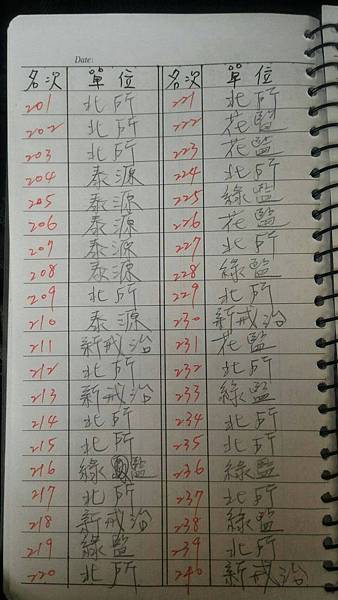 Date:
名次 單位 名次 單位
201 北所 221 北所
202 北所 222 花監
203 北所 223 花監
204 泰源 224 北所
205 泰源 225 綠監
206 泰源 226 花監
207 泰源 227 北所
208 泰源 228 綠監
209 北所 229 北所
210 泰源 230 新戒治
211 新戒治 231 花監
212 北所 232 北所
213 新戒治 233 綠監
214 北所 234 北所
215 北所 235 北所
216 綠監 236 綠監
217 北所 237 北所
218 新戒治 238 綠監
219 綠監 239 北所
220 北所 240 新戒治